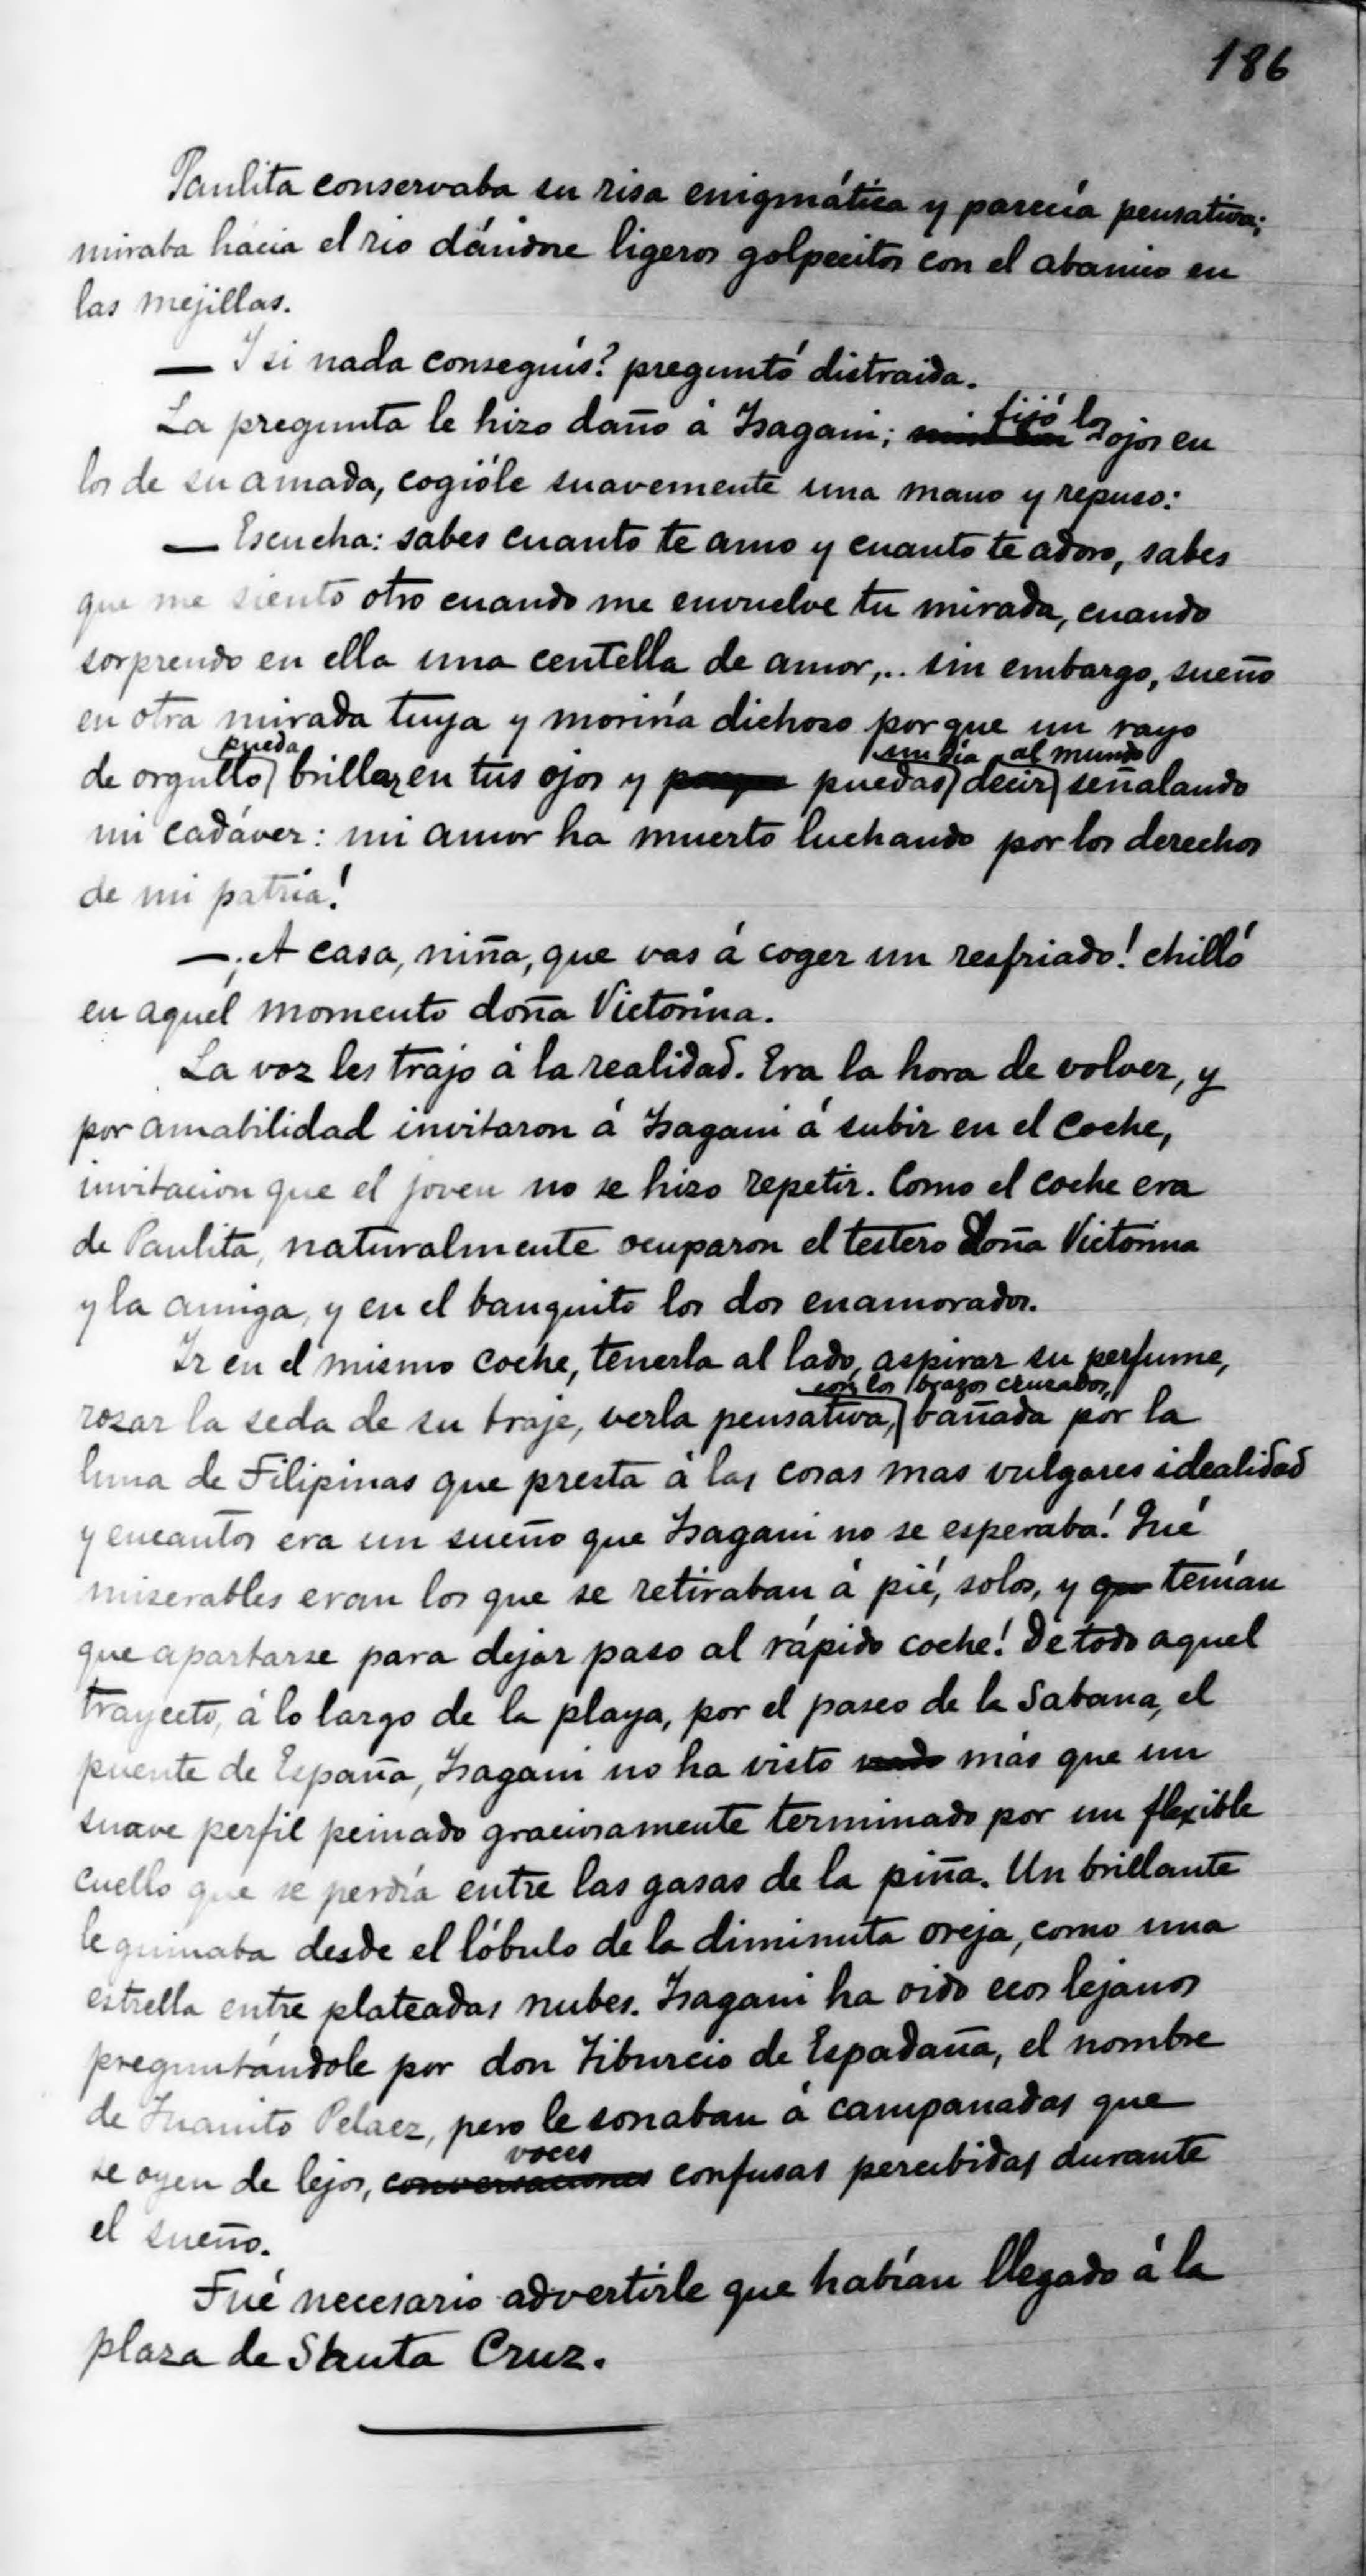 186
Paulita conservaba su risa enigmática y parecía pensativa;
miraba hácia el rio dándose ligeros golpecitos con el abanico en
las mejillas.
— Y si nada conseguís? preguntó distraida.
fijó los
La pregunta le hizo daño á Isagani; ojos en
los de su amada, cogióle suavemente una mano y repuso:
— Escucha: sabes cuanto te amo y cuanto te adoro, sabes
que me siento otro cuando me envuelve tu mirada, cuando
sorprendo en ella una centella de amor,... sin embargo, sueño
en otra mirada tuya y moriría dichoso porque un rayo
pueda un día al mundo
de orgullo brillar en tus ojos y puedas decir señalando
mi cadáver: mi amor ha muerto luchando por los derechos
de mi patria!
— ¡A casa, niña, que vas á coger un resfriado! chilló
en aquel momento doña Victorina.
La voz les trajo á la realidad. Era la hora de volver, y
por amabilidad invitaron á Isagani á subir en el coche,
invitacion que el joven no se hizo repetir. Como el coche era
de Paulita, naturalmente ocuparon el testero doña Victorina
y la amiga, y en el banquito los dos enamorados.
Ir en el mismo coche, tenerla al lado, aspirar su perfume,
con los brazos cruzados,
rozar la seda de su traje, verla pensativa, bañada por la
luna de Filipinas que presta á las cosas mas vulgares idealidad
y encantos era un sueño que Isagani no se esperaba! Qué
miserables eran los que se retiraban á pié, solos, y que tenían
que apartarse para dejar paso al rápido coche! De todo aquel
trayecto, á lo largo de la playa, por el paseo de la Sabana, el
puente de España, Isagani no ha visto nada más que un
suave perfil peinado graciosamente terminado por un flexible
cuello que se perdía entre las gasas de la piña. Un brillante
le guiñaba desde el lóbulo de la diminuta oreja, como una
estrella entre plateadas nubes. Isagani ha oido ecos lejanos
preguntándole por don Tiburcio de Espadaña, el nombre
de Juanito Pelaez, pero le sonaban á campanadas que
voces
se oyen de lejos, conversaciones confusas percibidas durante
el sueño.
Fué necesario advertirle que habían llegado á la
plaza de Santa Cruz.